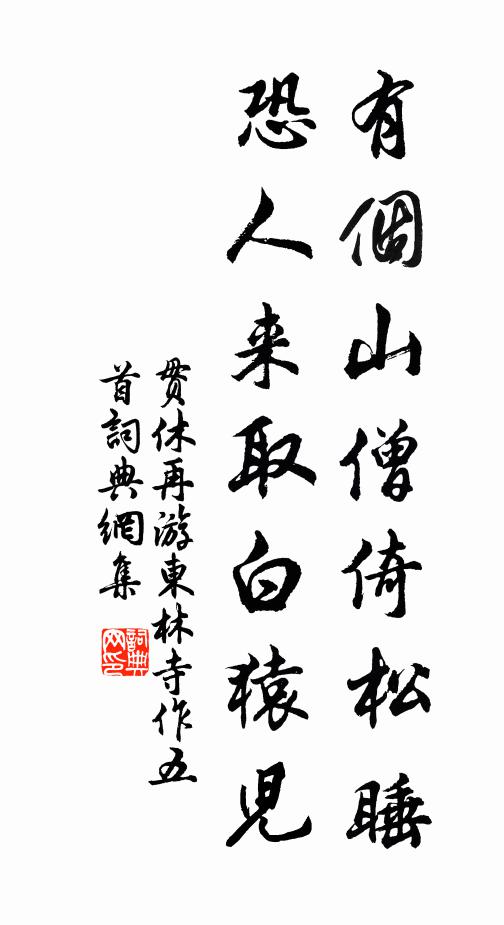 有個山僧倚松睡
恐人来取白猿児
貫休再游東林寺作五
首詞典網集
詞典网印